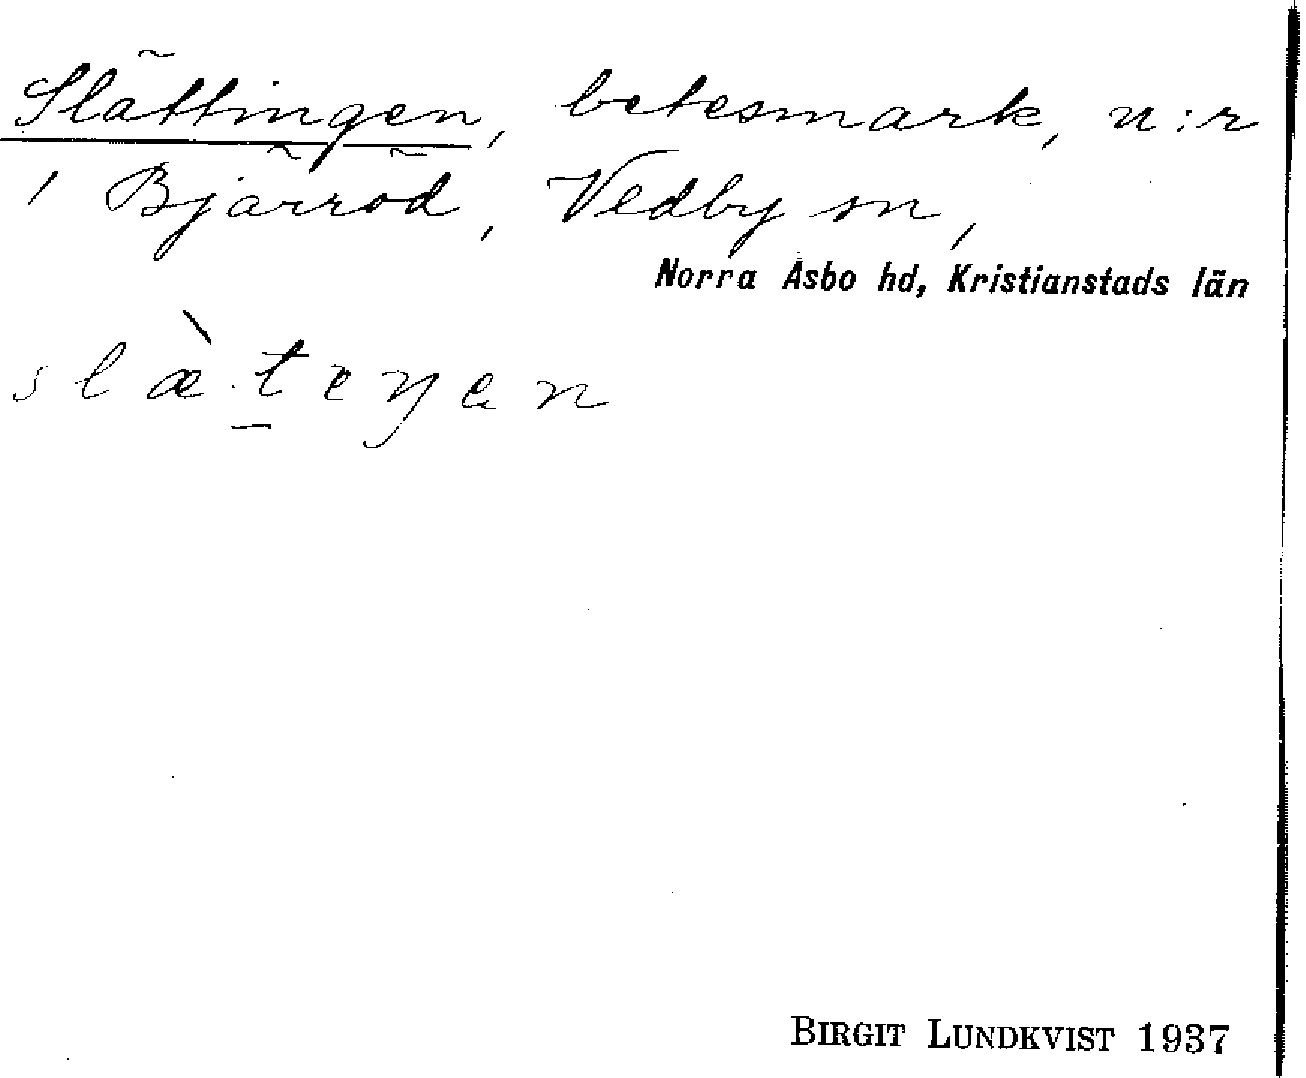 Slättingen, betesmark, n:r
1 Bjärröd, Vedby sn,
Norra Åsbo hd, Kristianstads län
slæ̀t̠eŋen
BIRGIT LUNDKVIST 1937